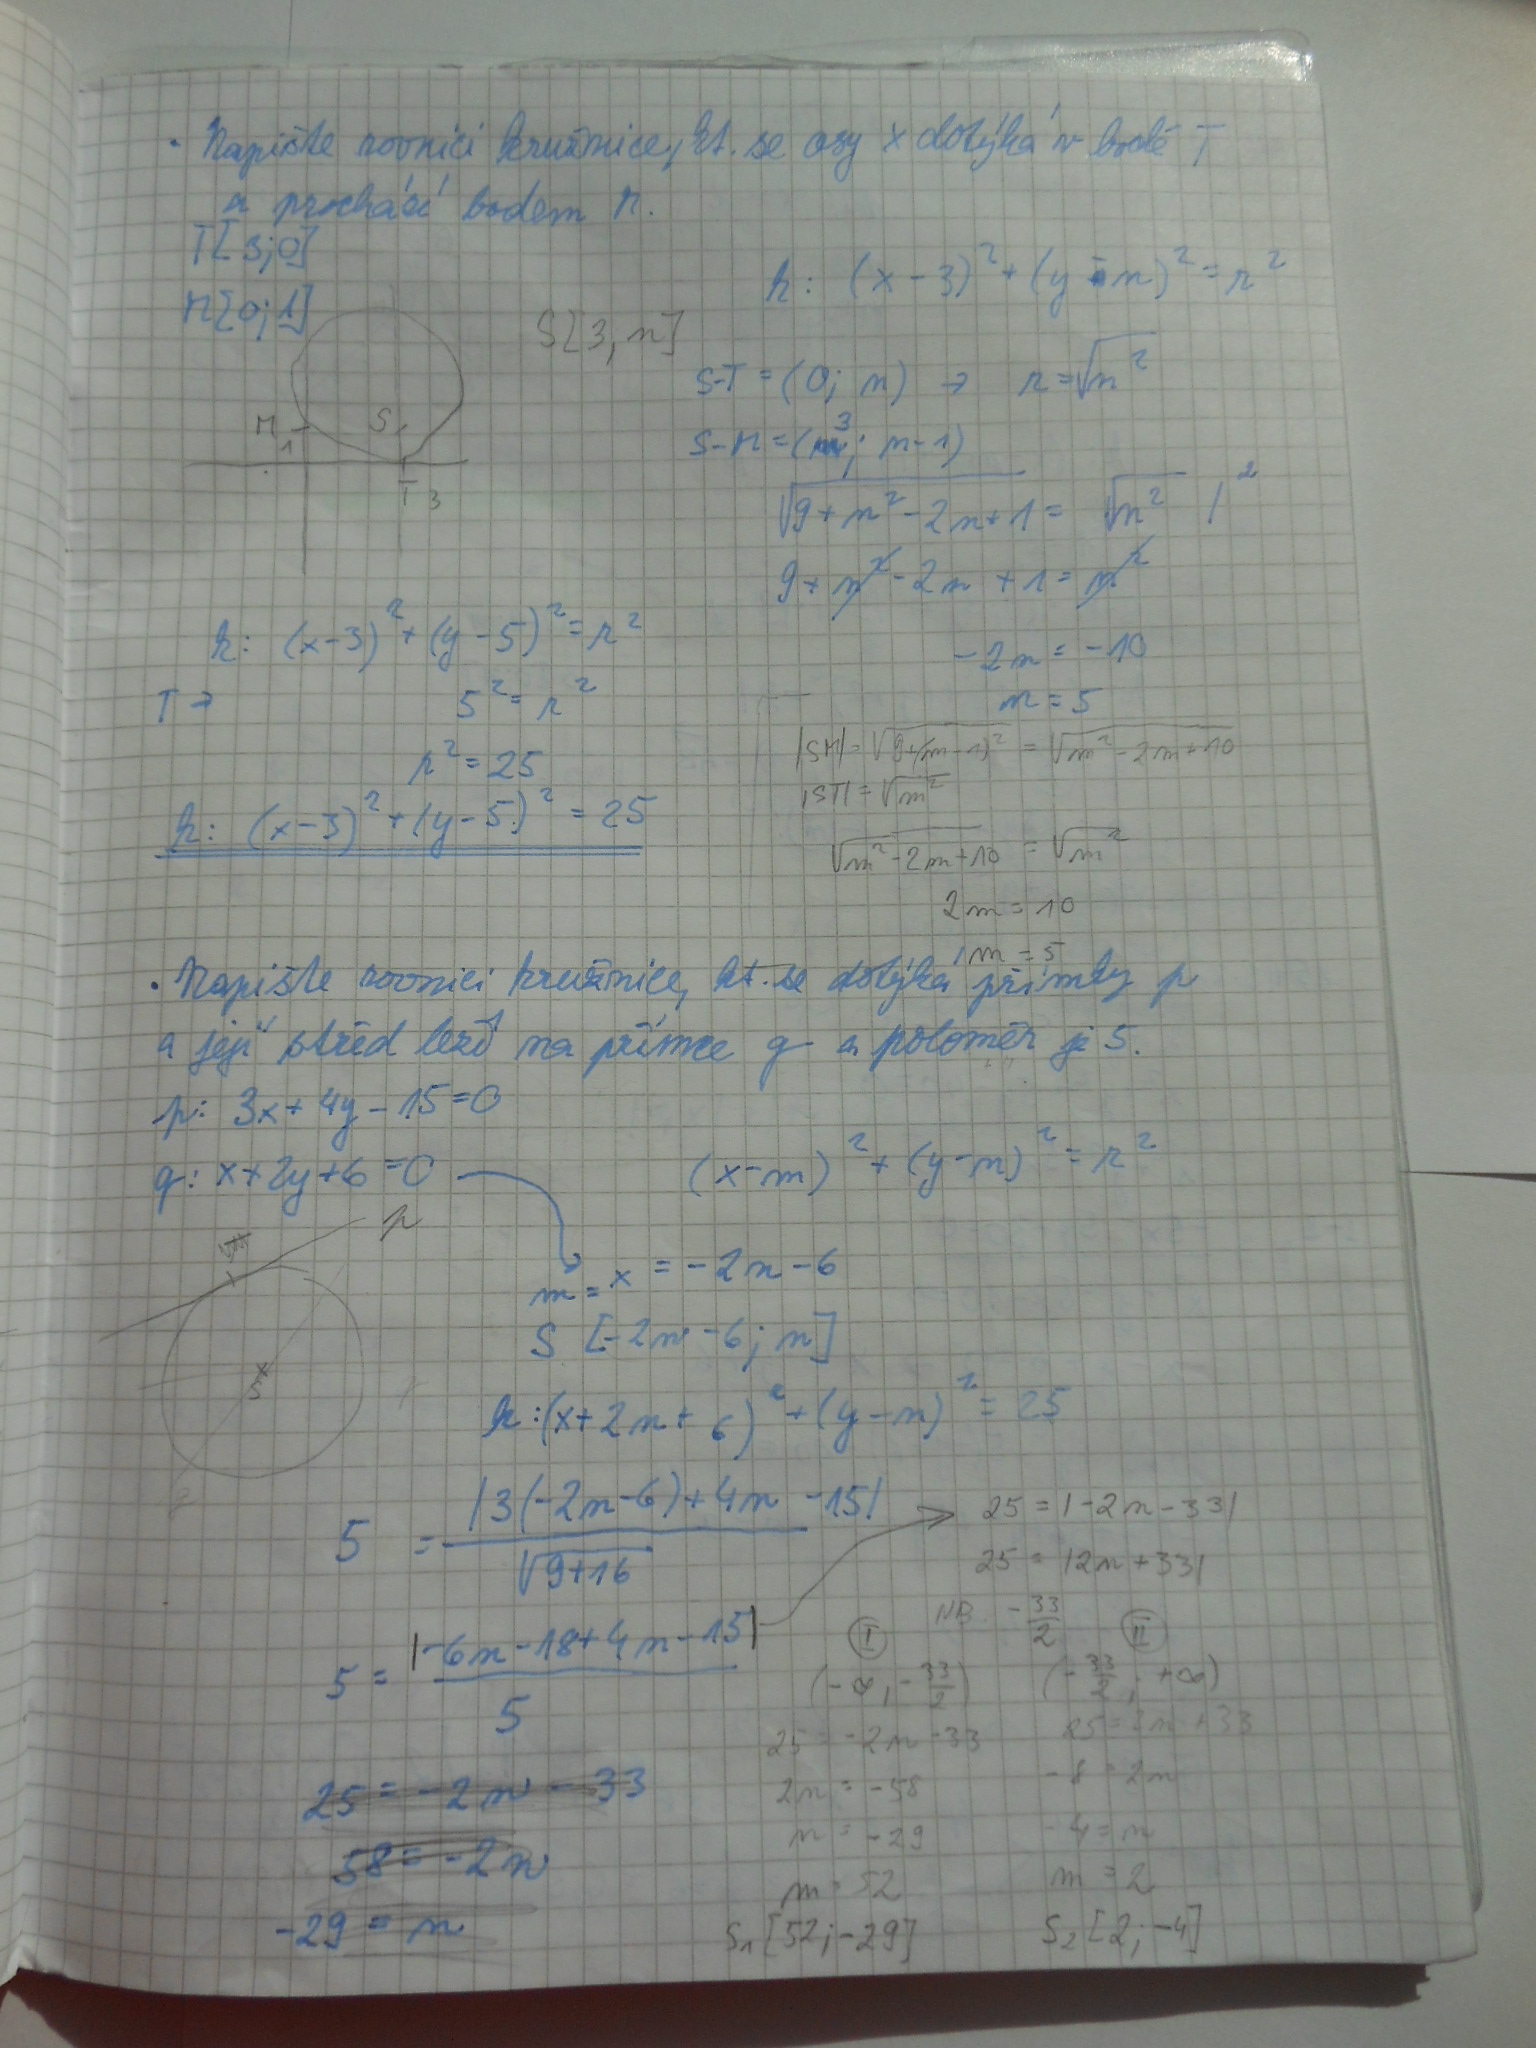 · Napište rovnici kružnice, kt. se osy x dotýká v bodě T
a prochází bodem M.
T[3;0]
M[0;1]
S[3, n]
k: (x-3)² + (y-n)² = r²
S-T = (0; n) → r = √n²
S-M = (3; n-1)
√9+n²-2n+1 = √n² /²
9+n²-2n+1 = n²
-2n = -10
n = 5
M 1
S
T 3
k: (x-3)² + (y-5)² = r²
T → 5² = r²
r² = 25
k: (x-3)² + (y-5)² = 25
|SM| = √9+(m-1)² = √m²-2m+10
|ST| = √m²
√m²-2m+10 = √m²
2m = 10
m = 5
· Napište rovnici kružnice, kt. se dotýká přímky p
a její střed leží na přímce q a poloměr je 5.
p: 3x+4y-15=0
q: x+2y+6=0
(x-m)² + (y-n)² = r²
p
S
m = x = -2n-6
S [-2n-6; n]
k: (x+2n+6)² + (y-n)² = 25
5 = |3(-2n-6)+4n-15| / √9+16
5 = |-6n-18+4n-15| / 5
25 = -2n-33
58 = -2n
-29 = n
25 = |-2n-33|
25 = |2n+33|
NB -33/2
I
(-∞, -33/2)
25 = -2n-33
2n = -58
n = -29
m = 52
S₁ [52; -29]
II
(-33/2; +∞)
25 = 2n+33
-8 = 2n
-4 = n
m = 2
S₂ [2; -4]